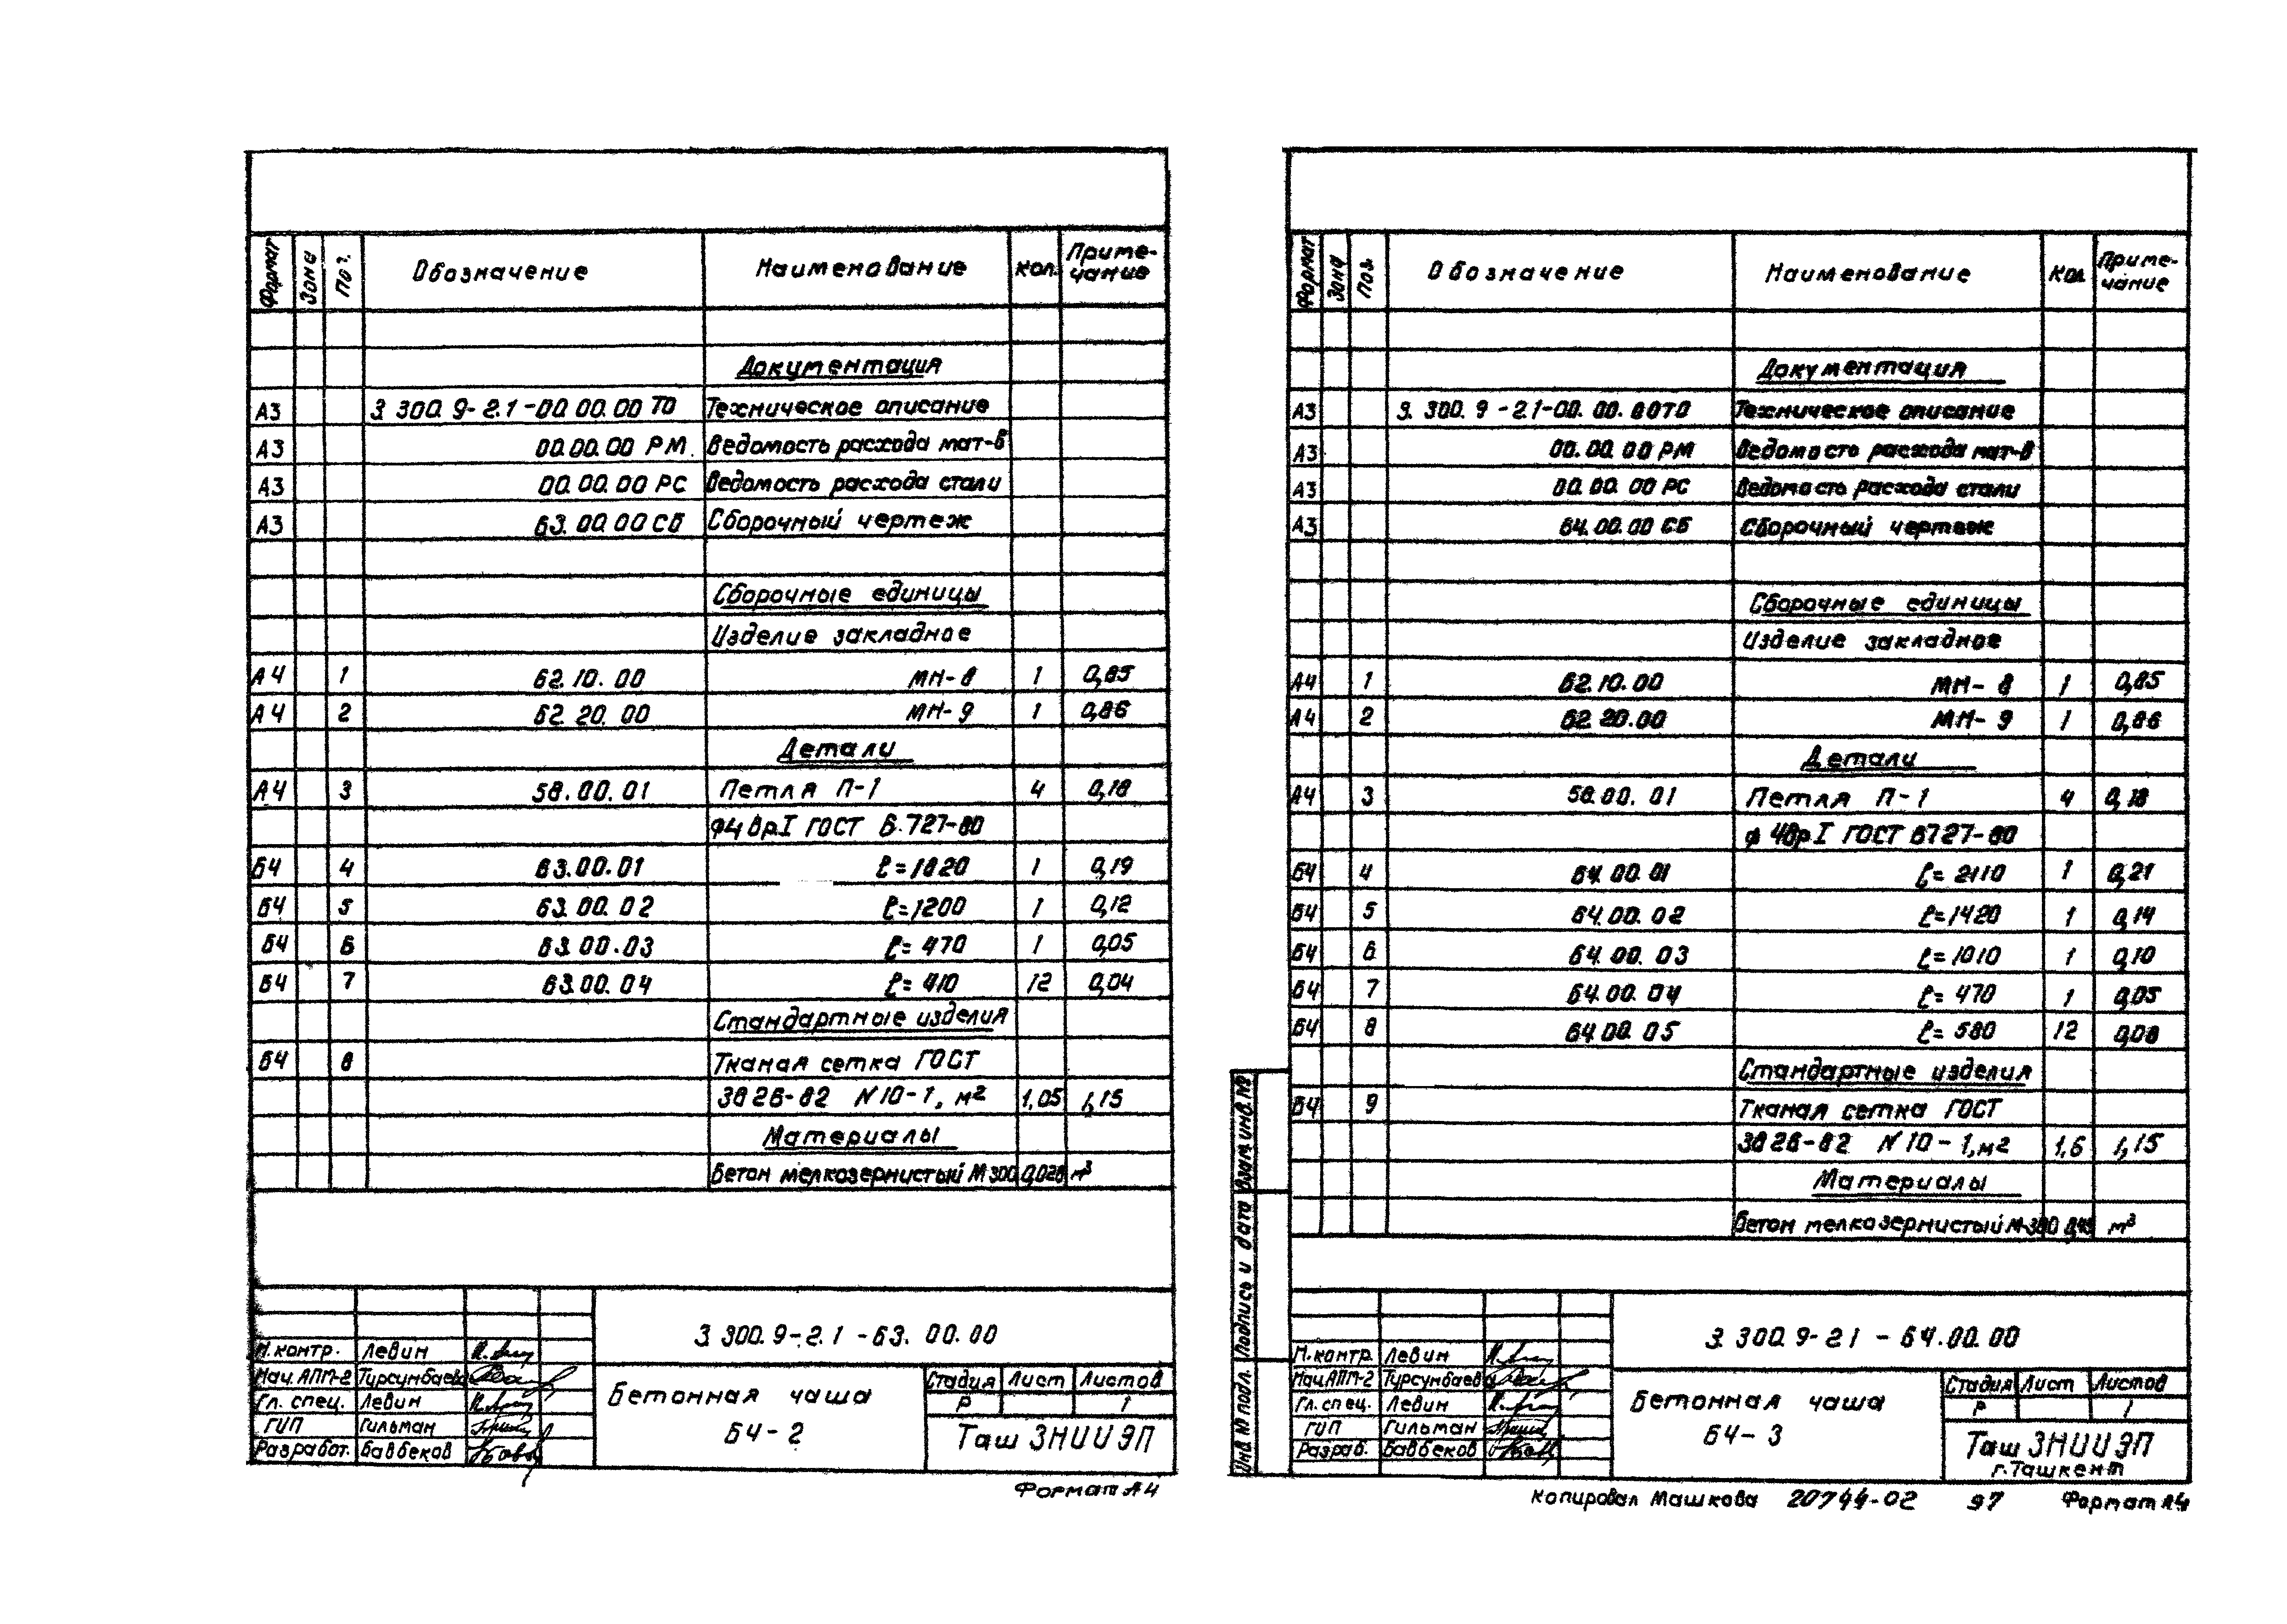 Формат Зона Поз. Обозначение Наименование Кол. Приме-
чание
Документация
А3 3.300.9-2.1-00.00.00 ТО Техническое описание
А3 00.00.00 РМ Ведомость расхода мат-в
А3 00.00.00 РС Ведомость расхода стали
А3 63.00.00 СБ Сборочный чертеж
Сборочные единицы
Изделие закладное
А4 1 62.10.00 МН-8 1 0,85
А4 2 62.20.00 МН-9 1 0,86
Детали
А4 3 58.00.01 Петля П-1 4 0,18
ф4 ВрI ГОСТ 6727-80
Б4 4 63.00.01 ℓ=1820 1 0,19
Б4 5 63.00.02 ℓ=1200 1 0,12
Б4 6 63.00.03 ℓ=470 1 0,05
Б4 7 63.00.04 ℓ=410 12 0,04
Стандартные изделия
Б4 8 Тканая сетка ГОСТ
3826-82 N10-1, м² 1,05 1,15
Материалы
Бетон мелкозернистый М300 0,028 м³
3.300.9-2.1-63.00.00
Н.контр. Левин
Нач.АПМ-2 Турсунбаева
Гл. спец. Левин
ГИП Гильман
Разработ. Бавбеков
Бетонная чаша
БЧ-2
Стадия Лист Листов
Р 1
ТашЗНИИЭП
Формат А4
Формат Зона Поз. Обозначение Наименование Кол. Приме-
чание
Документация
А3 3.300.9-2.1-00.00.00ТО Техническое описание
А3 00.00.00 РМ Ведомость расхода мат-в
А3 00.00.00 РС Ведомость расхода стали
А3 64.00.00 СБ Сборочный чертеж
Сборочные единицы
Изделие закладное
А4 1 62.10.00 МН-8 1 0,85
А4 2 62.20.00 МН-9 1 0,86
Детали
А4 3 58.00.01 Петля П-1 4 0,18
ф 4ВрI ГОСТ 6727-80
Б4 4 64.00.01 ℓ=2110 1 0,21
Б4 5 64.00.02 ℓ=1420 1 0,14
Б4 6 64.00.03 ℓ=1010 1 0,10
Б4 7 64.00.04 ℓ=470 1 0,05
Б4 8 64.00.05 ℓ=580 12 0,06
Стандартные изделия
Б4 9 Тканая сетка ГОСТ
3826-82 N10-1, м² 1,6 1,15
Материалы
Бетон мелкозернистый М-300 м³
Инв N подл. Подпись и дата Взам.инв.N
3.300.9-2.1-64.00.00
Н.контр. Левин
Нач.АПМ-2 Турсунбаева
Гл. спец. Левин
ГИП Гильман
Разраб. Бавбеков
Бетонная чаша
БЧ-3
Стадия Лист Листов
Р 1
ТашЗНИИЭП
г.Ташкент
Копировал Машкова 20744-02 97 Формат А4